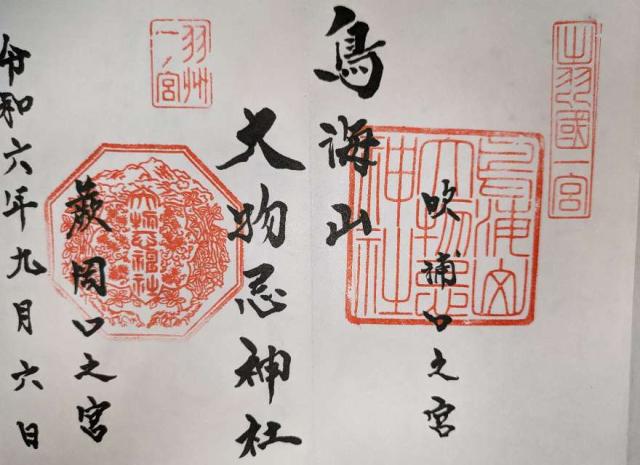 出羽國一宮
吹浦口之宮
鳥海山大物忌神社
鳥海山
大物忌神社
羽州一ノ宮
大物忌神社
蕨岡口之宮
令和六年九月六日